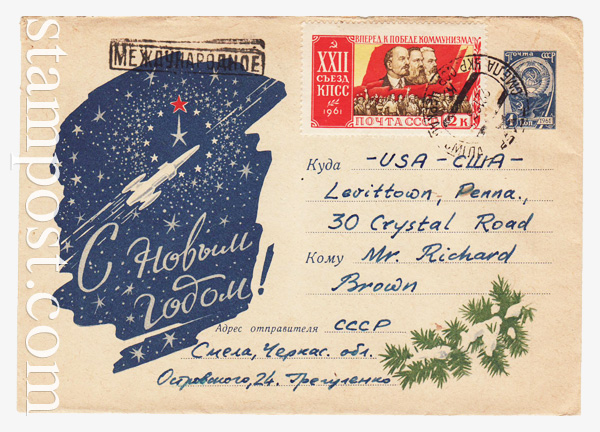 МЕЖДУНАРОДНОЕ
ВПЕРЕД К ПОБЕДЕ КОММУНИЗМА!
XXII
СЪЕЗД
КПСС
1961
ПОЧТА СССР
2 К
ПОЧТА СССР
С Новым
годом!
Куда -USA-США-
Levittown, Penna.,
30 Crystal Road
Кому Mr. Richard
Brown
Адрес отправителя СССР
Смела, Черкас. обл.
Островского, 24. Грегуленко
stampost.com
stampost.com